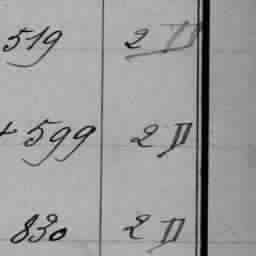 519 2 II
+ 599 2 II
830 2 II